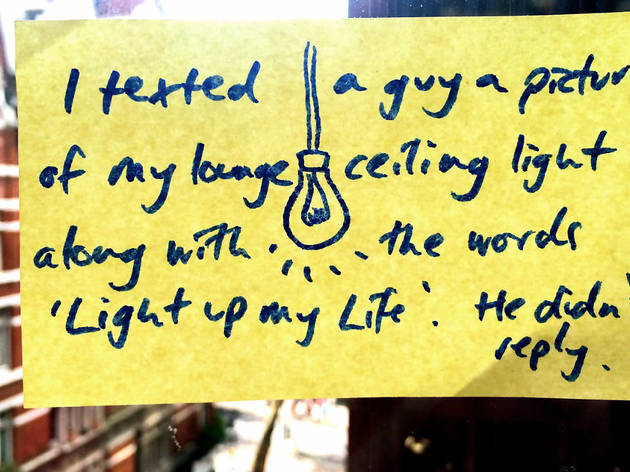 I texted a guy a pictur
of my lounge ceiling light
along with the words
'Light up my Life'. He didn'
reply.